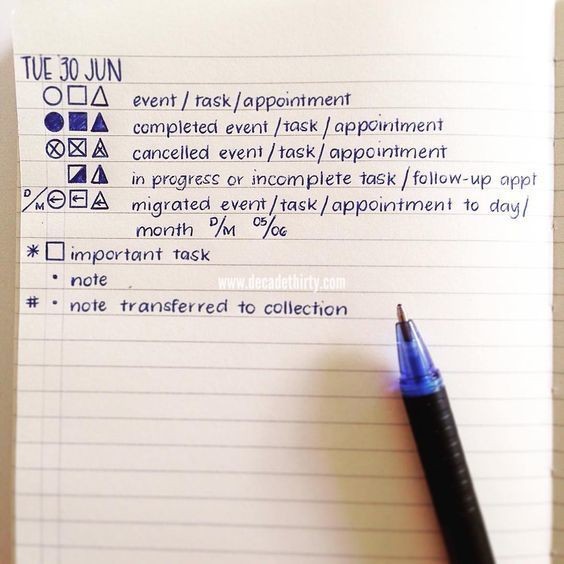 TUE 30 JUN
event/task/appointment
completed event/task/appointment
cancelled event/task/appointment
in progress or incomplete task/follow-up appt
D/M migrated event/task/appointment to day/
month D/M 05/06
* important task
• note
www.decadethirty.com
# • note transferred to collection